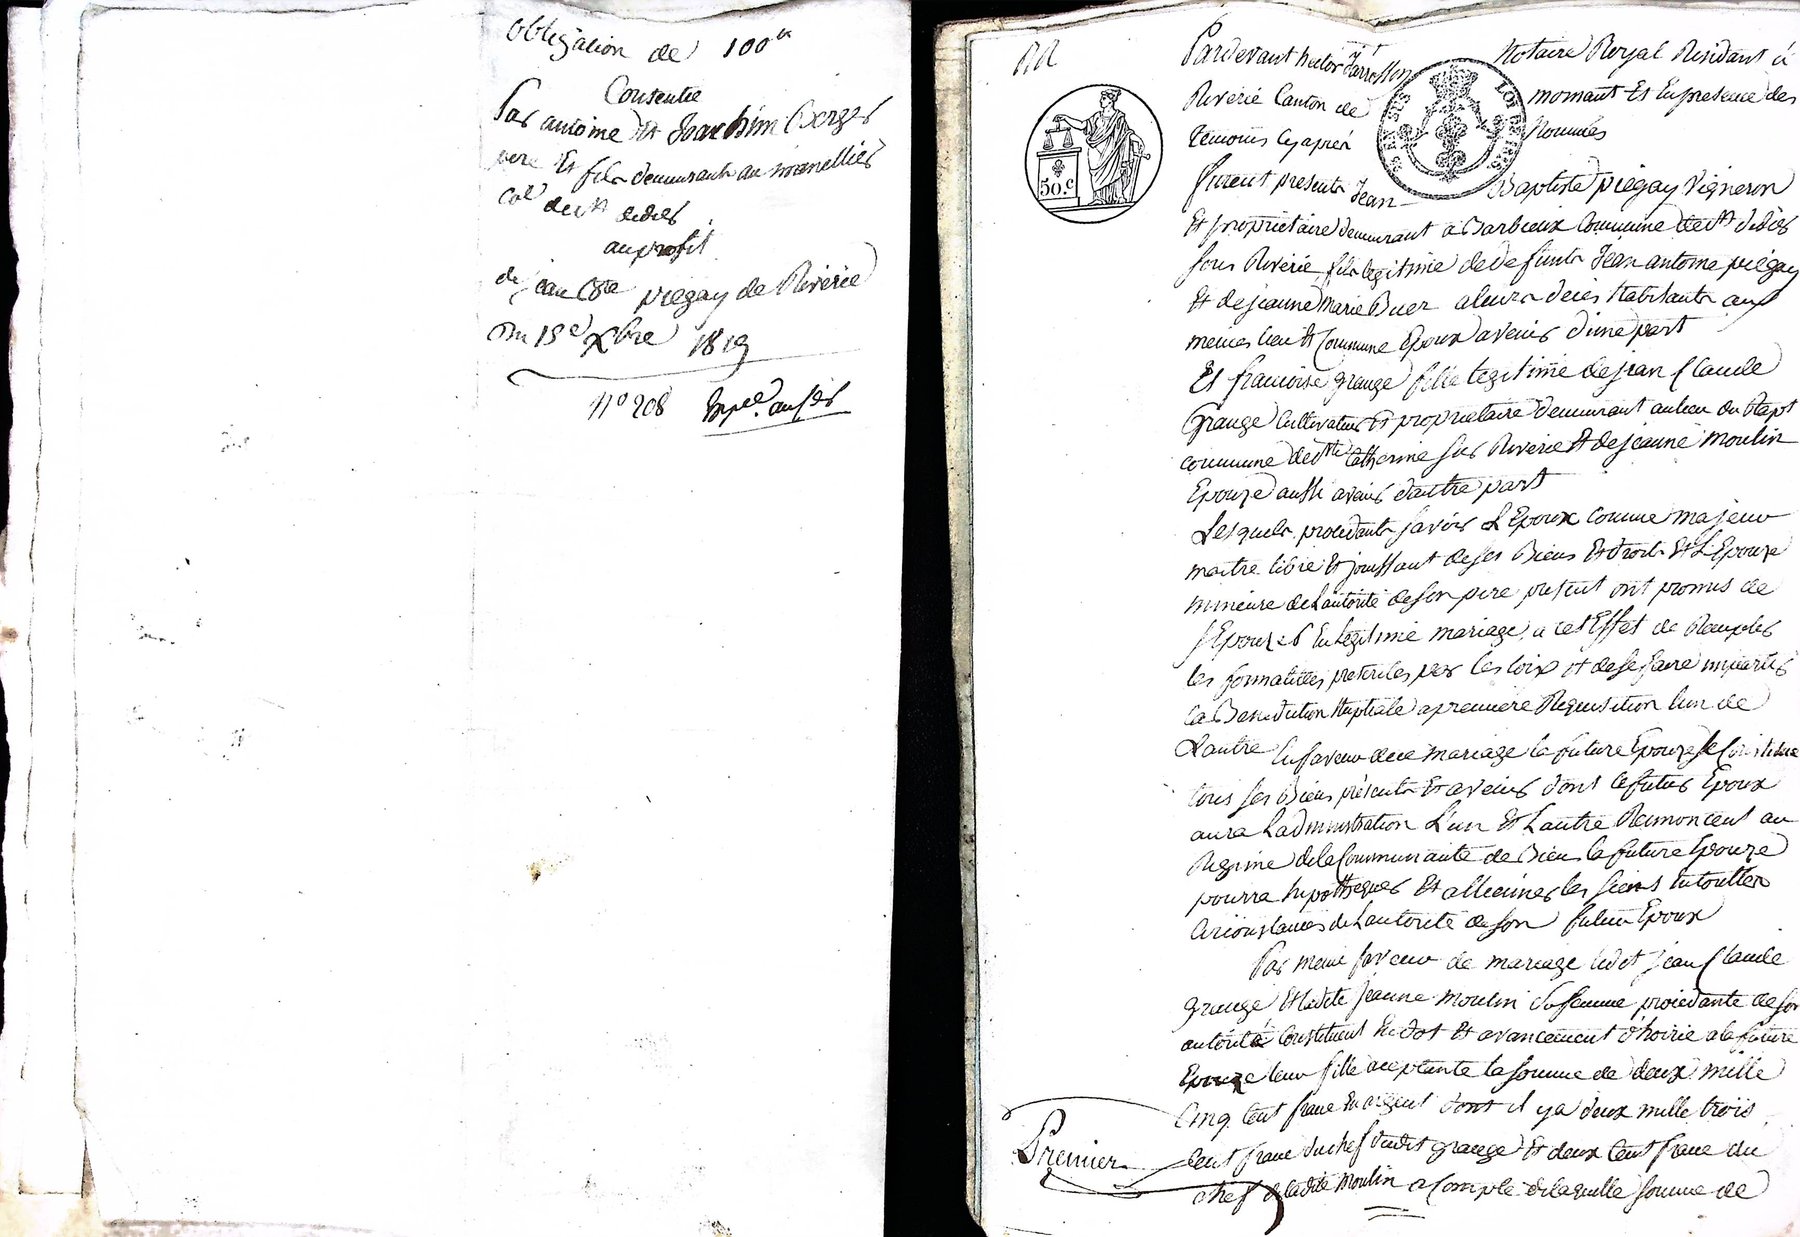 Obligation de 100 fr
Consentie
Par antoine et Joachim Berger
pere Et fils demeurants au
Cne de st didier
au profit
de jean Bte piegay de Riverie
Du 15e Xbre 1819
N° 208 Exped. au sr
Pardevant hector Jarrosson Notaire Royal Residant à
Riverie Canton de mornant Et En presence des
Temoins Cy après Nommés
furent presents Jean Baptiste piegay Vigneron
Et proprietaire demeurant à Barbieux Commune de st didier
sous Riverie fils legitime de defunts Jean antoine piegay
Et de jeanne Marie Buer a leurs deces habitants aux
memes lieu Et Commune Epoux avenir d'une part
Et francoise grange fille legitime de jean Claude
Grange Cultivateur Et proprietaire demeurant au lieu du
commune de ste Catherine sur Riverie Et de jeanne Moulin
Epouze aussi avenir d'autre part
Lesquels procedants savoir L'Epoux comme majeur
maitre libre Et jouissant de ses Biens Et droits Et L'Epouze
mineure de L'autorité de son pere present ont promis de
s'Epouzer En legitime mariage, a cet Effet de Remplir
les formalitées prescrites par les loix et de se faire impartir
la Benediction Nuptiale a premiere Requisition l'un de
L'autre En faveur de ce mariage la future Epouze se Constitue
tous ses Biens présents Et avenir dont le futur Epoux
aura L'administration L'un Et L'autre Renoncent au
Regime de la Communauté de Biens la future Epouze
pourra hypothequer Et allieiner les siens En toutes
Circonstances de L'autorité de son futur Epoux
Par meme faveur de mariage ledit jean Claude
grange Et ladite Jeanne Moulin sa femme procedante de son
autorité Constituent En dot Et avancement d'hoirie a la future
Epouze leur fille acceptante la somme de deux mille
Cinq Cent franc En argent dont il y a deux mille trois
Cent franc du chef dudit grange Et deux Cent franc du
chef de ladite Moulin a Compte de laquelle somme de
Premier
50.c